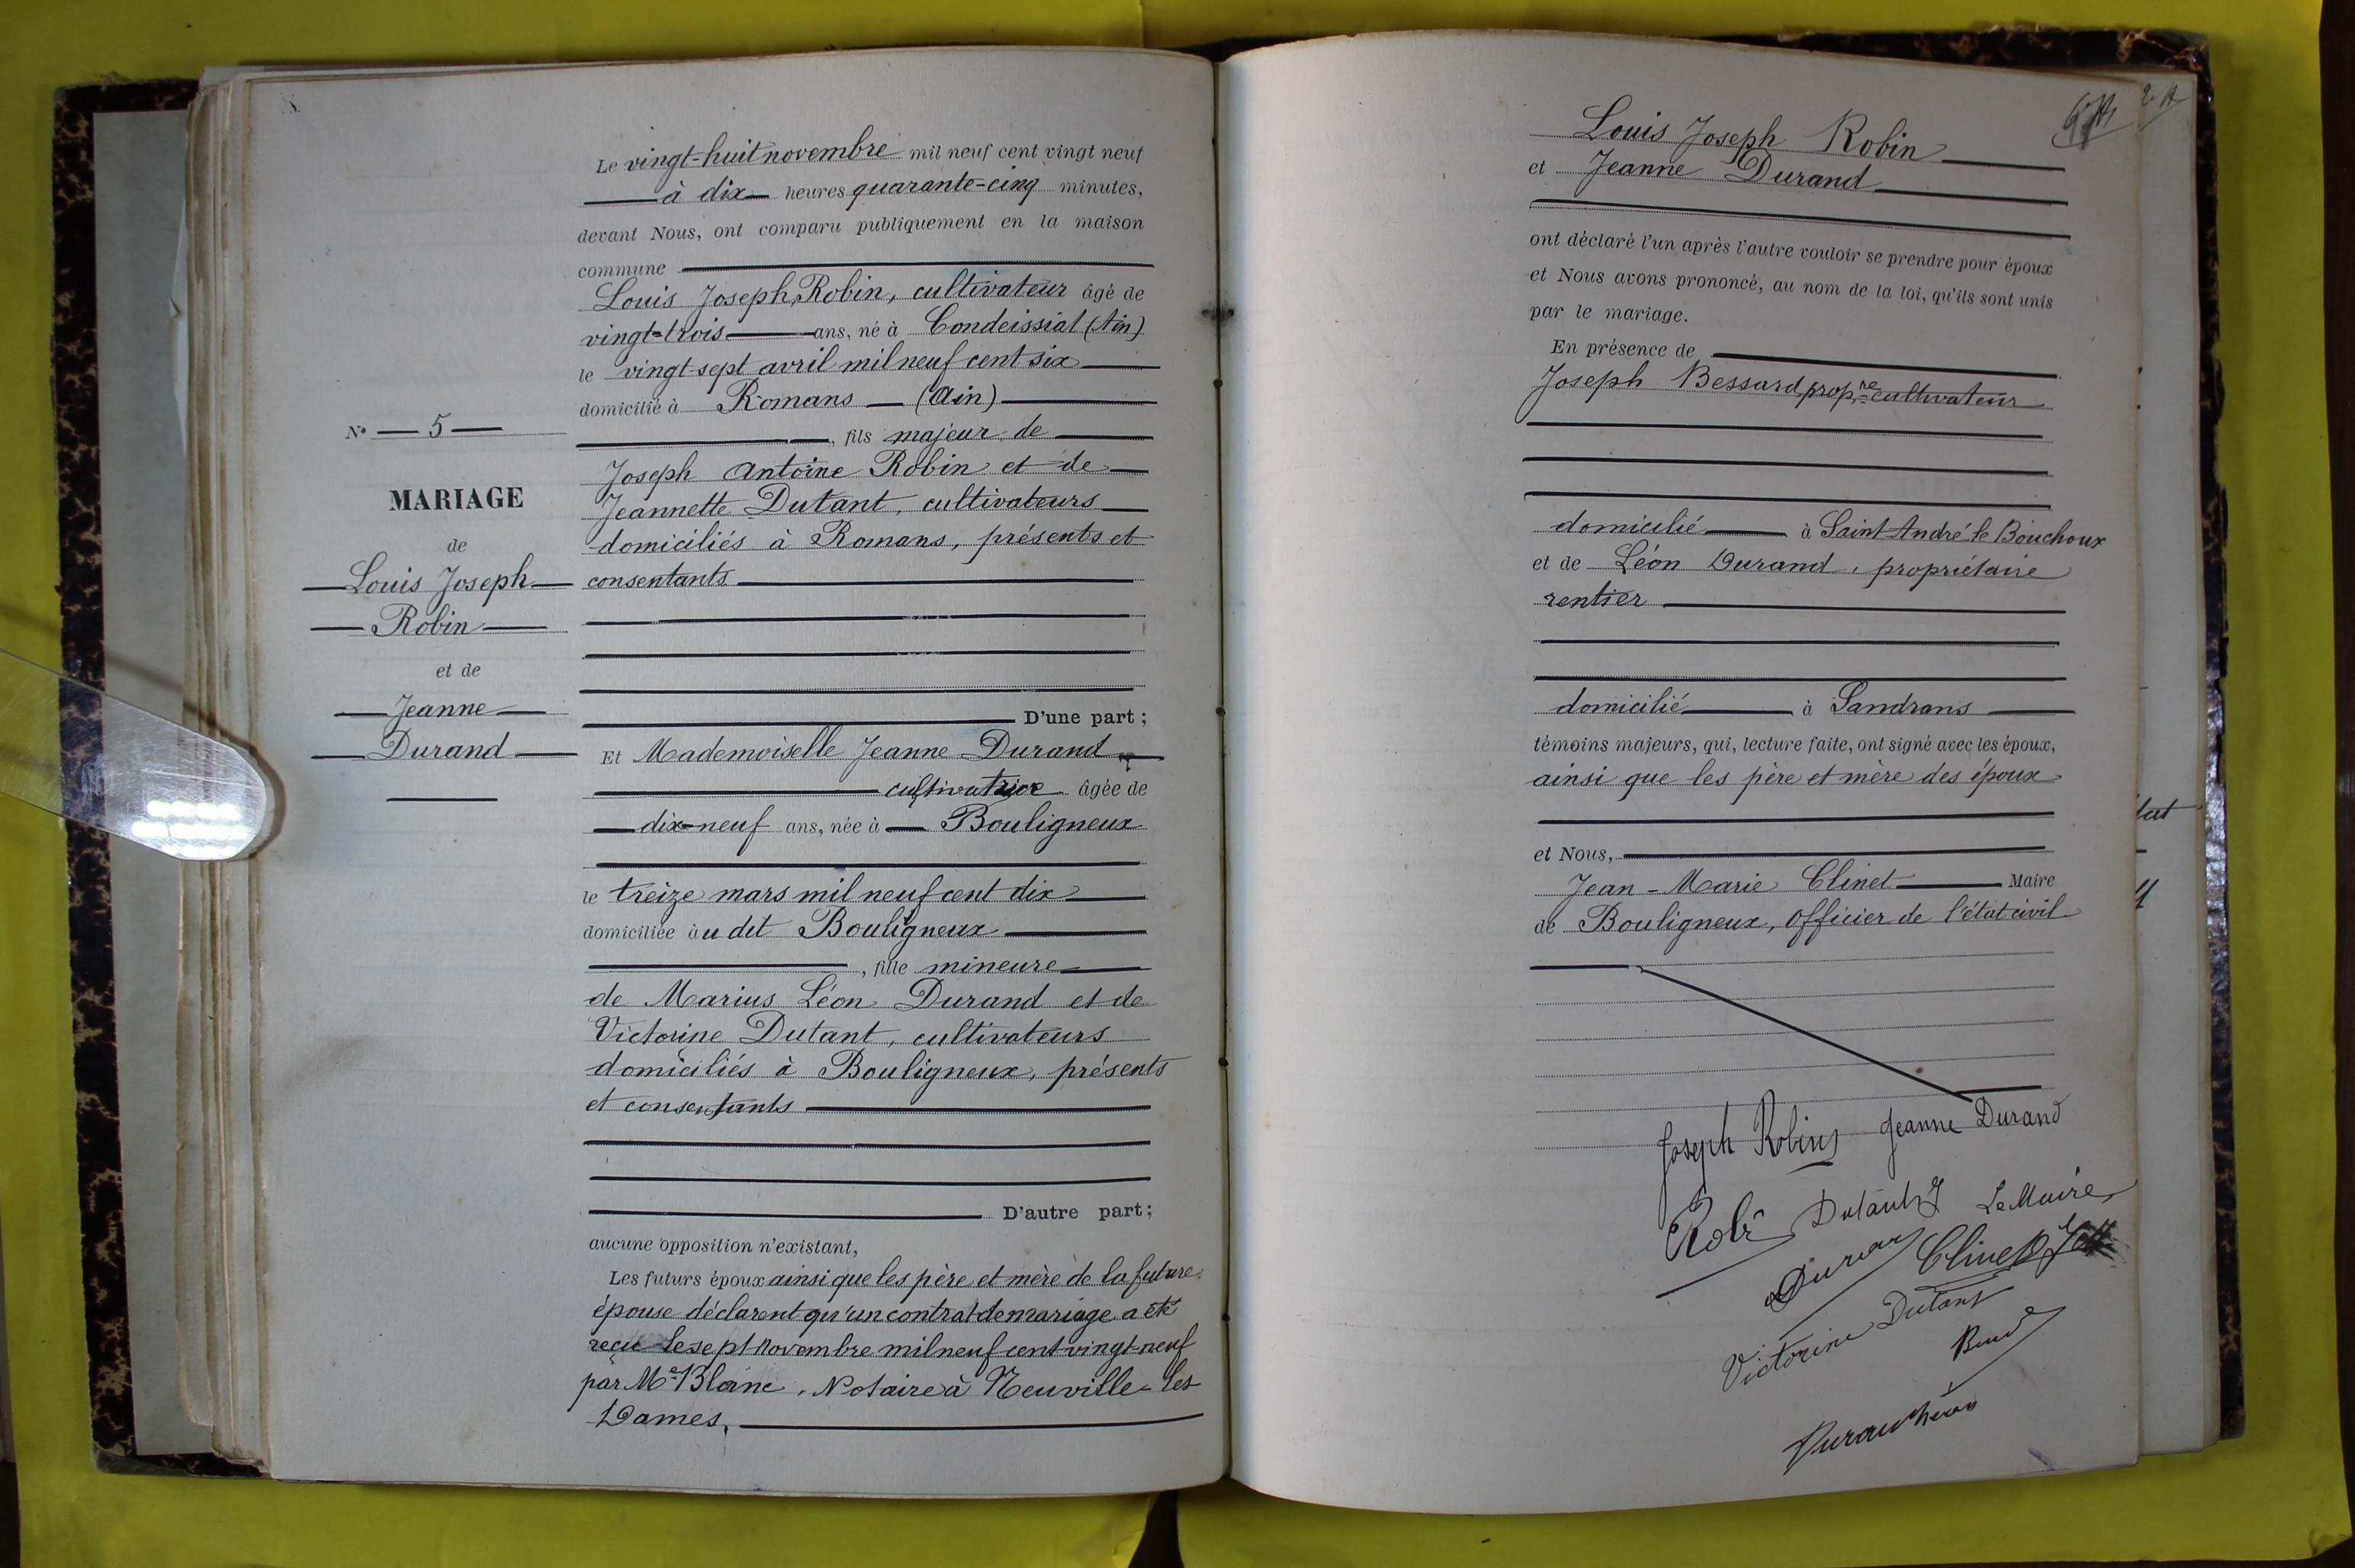 Le vingt-huit novembre mil neuf cent vingt neuf
à dix heures quarante-cinq minutes,
devant Nous, ont comparu publiquement en la maison
commune
Louis Joseph Robin, cultivateur âgé de
vingt-trois ans, né à Condeissiat (Ain)
le vingt-sept avril mil neuf cent six
domicilié à Romans (Ain)
, fils majeur de
Joseph Antoine Robin et de
Jeannette Dutant, cultivateurs
domiciliés à Romans, présents et
consentants
D'une part ;
N° 5
MARIAGE
de
Louis Joseph
Robin
et de
Jeanne
Durand
Et Mademoiselle Jeanne Durand
cultivatrice âgée de
dix-neuf ans, née à Bouligneux
le treize mars mil neuf cent dix
domiciliée àu dit Bouligneux
, fille mineure
de Marius Léon Durand et de
Victorine Dutant, cultivateurs
domiciliés à Bouligneux, présents
et consentants
D'autre part ;
aucune opposition n'existant,
Les futurs époux ainsi que les père et mère de la future
épouse déclarent qu'un contrat de mariage a été
reçu le sept novembre mil neuf cent vingt-neuf
par Me Blanc, Notaire à Neuville-les
Dames,
Louis Joseph Robin
et Jeanne Durand
ont déclaré l'un après l'autre vouloir se prendre pour époux
et Nous avons prononcé, au nom de la loi, qu'ils sont unis
par le mariage.
En présence de
Joseph Bessard, propre cultivateur
domicilié à Saint André le Bouchoux
et de Léon Durand, propriétaire
rentier
domicilié à Sandrans
témoins majeurs, qui, lecture faite, ont signé avec les époux,
ainsi que les père et mère des époux
et Nous,
Jean-Marie Clinet Maire
de Bouligneux, officier de l'état civil
Joseph Robin Jeanne Durand
Robin Dutant J Le Maire
Durand Clinet
Victorine Dutant